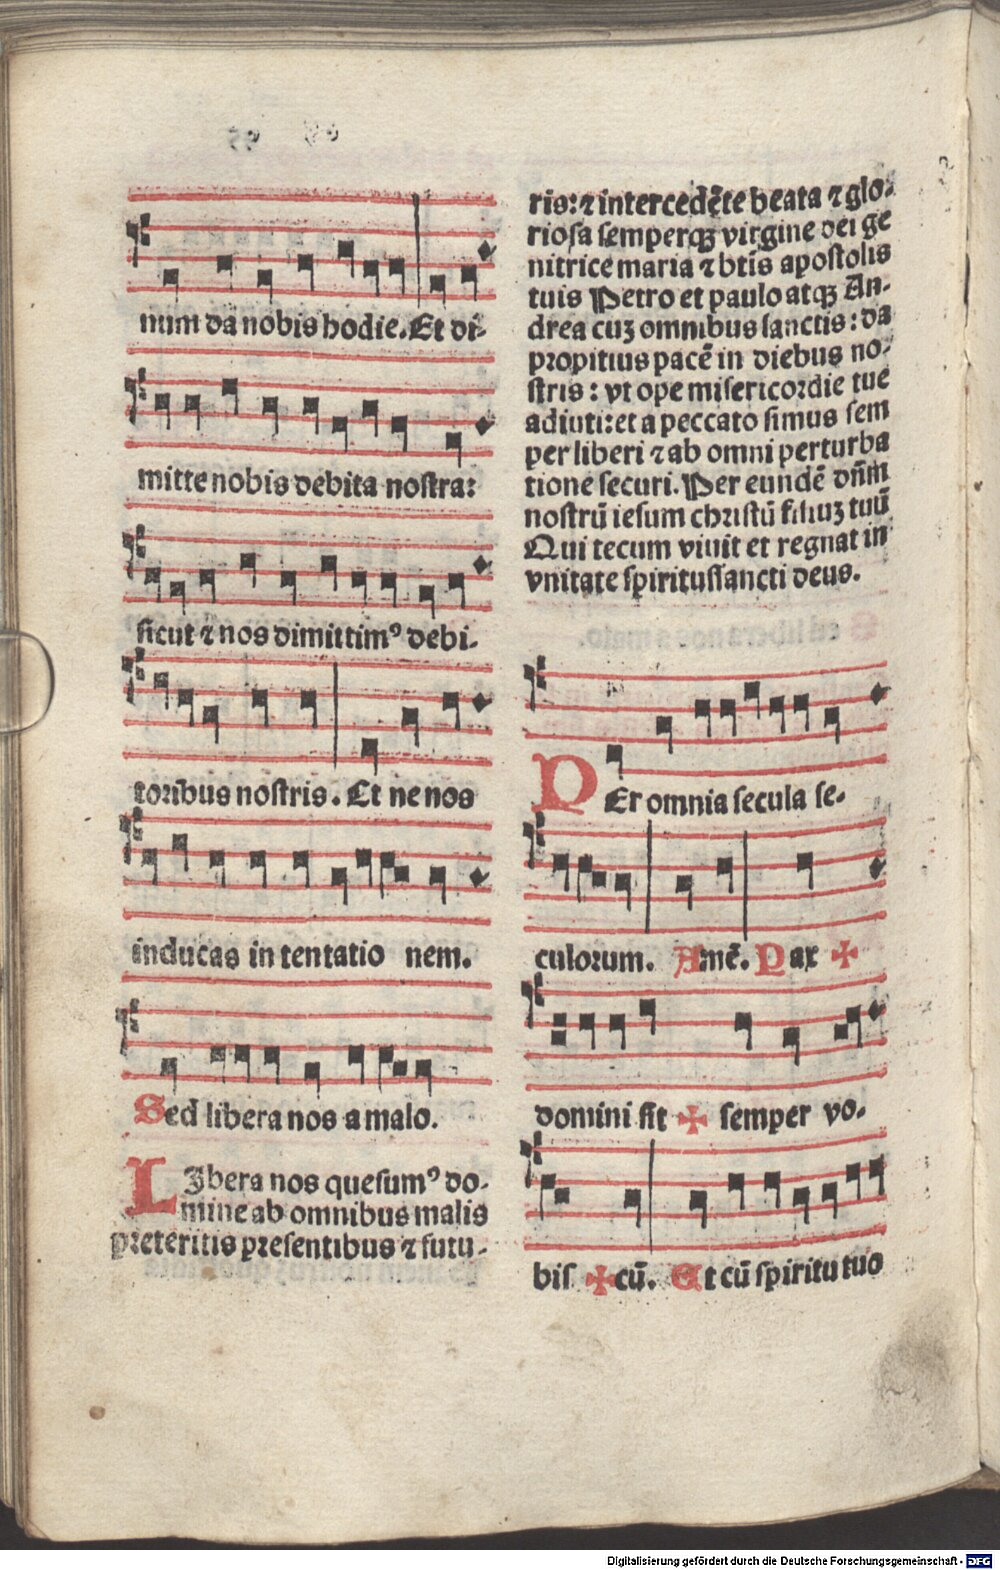 num da nobis hodie. Et di-
mitte nobis debita nostra:
sicut ⁊ nos dimittimꝰ debi-
toribus nostris. Et ne nos
inducas in tentatio nem.
Sed libera nos a malo.
LIbera nos quesumꝰ do-
mine ab omnibus malis
preteritis presentibus ⁊ futu-
ris: ⁊ intercedēte beata ⁊ glo-
riosa semperqꝫ virgine dei ge
nitrice maria ⁊ btīs apostolis
tuis Petro et paulo atqꝫ An-
drea cuꝫ omnibus sanctis: da
propitius pacē in diebus no-
stris: vt ope misericordie tue
adiuti: et a peccato simus sem
per liberi ⁊ ab omni perturba
tione securi. Per eundē dn̄m
nostrū iesum christū filiuꝫ tuū
Qui tecum viuit et regnat in
vnitate spiritussancti deus.
PEr omnia secula se-
culorum. Amē. Pax ✠
domini sit ✠ semper vo-
bis ✠ cū. Et cū spiritu tuo
Digitalisierung gefördert durch die Deutsche Forschungsgemeinschaft - DFG